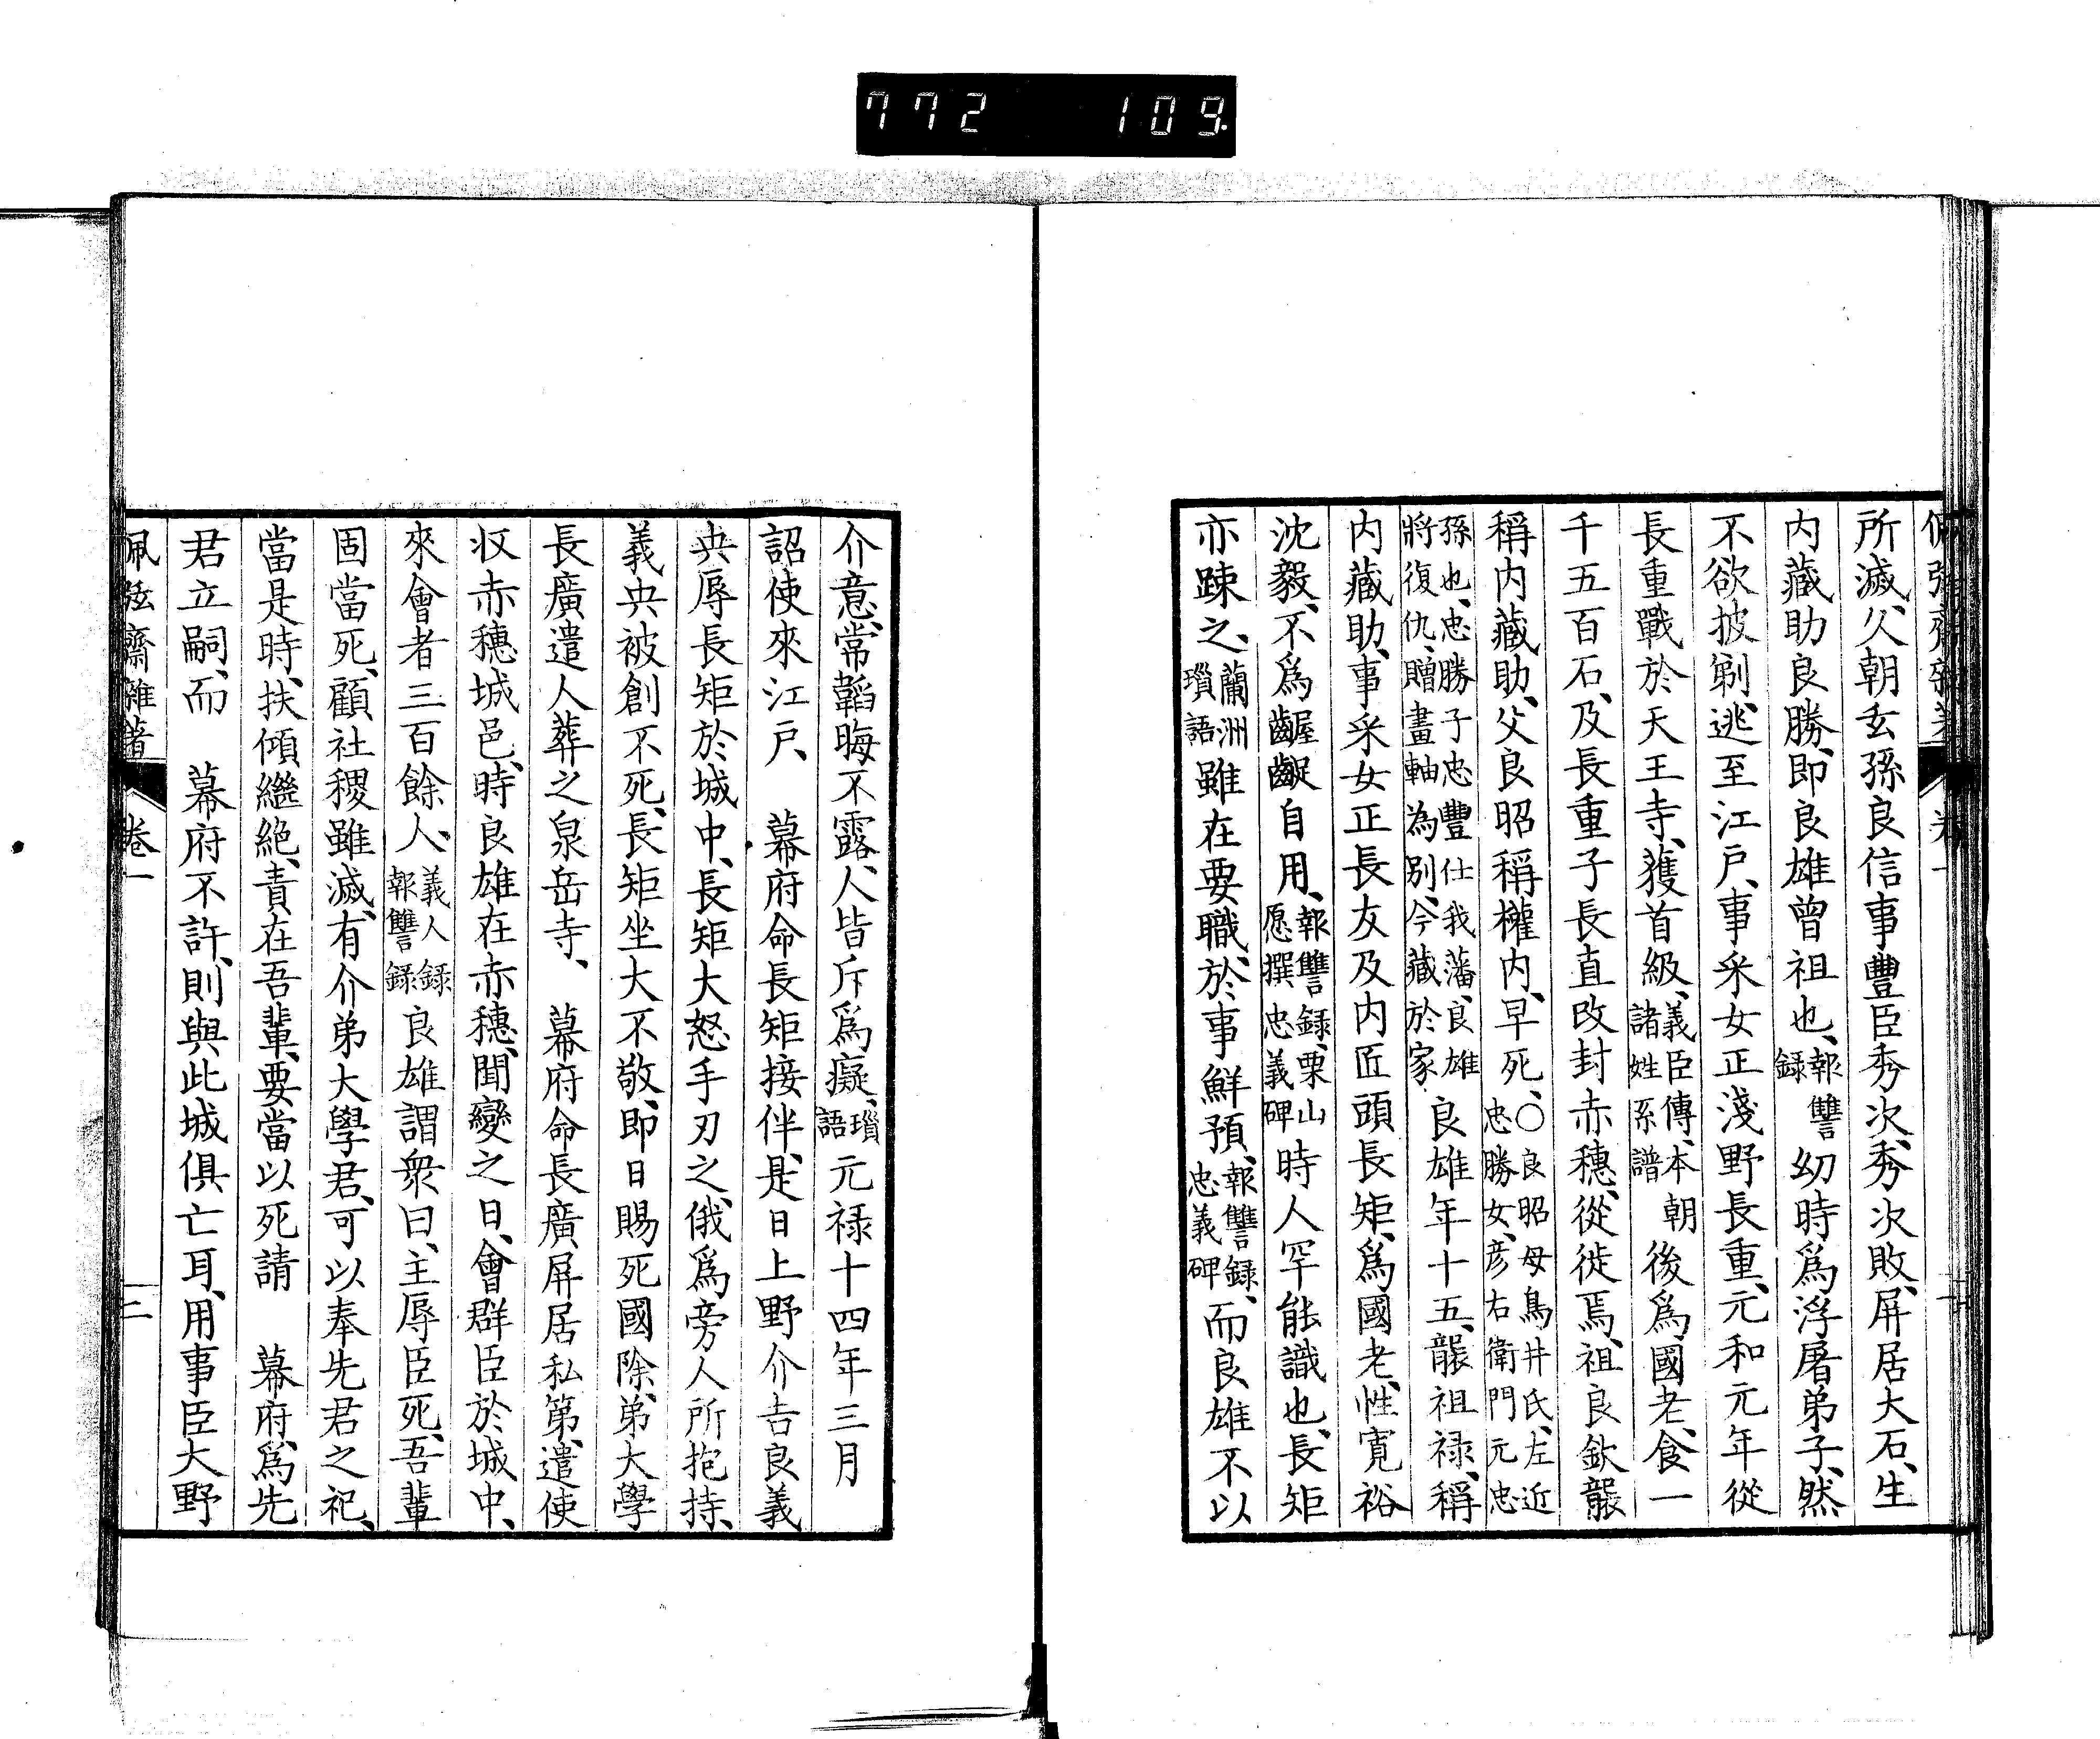 772 109.
所滅、久朝玄孫良信事豐臣秀次、秀次敗、屏居大石、生
内藏助良勝、即良雄曾祖也、報讐錄幼時爲浮屠弟子、然
不欲披剃、逃至江戸、事采女正淺野長重、元和元年從
長重戰於天王寺、獲首級、義臣傳、本朝諸姓系譜後爲國老、食一
千五百石、及長重子長直改封赤穗、從徙焉、祖良欽襲
稱内藏助、父良昭稱權内、早死、〇良昭母鳥井氏、左近忠勝女、彦右衛門元忠
孫也、忠勝子忠豐仕我藩、良雄將復仇、贈畫軸為別、今藏於家良雄年十五、襲祖祿、稱
内藏助、事采女正長友及内匠頭長矩、爲國老、性寛裕
沈毅、不爲齷齪自用、報讐錄、栗山愿撰忠義碑時人罕能識也、長矩
亦踈之、蘭洲瑣語雖在要職、於事鮮預、報讐錄、忠義碑而良雄不以
介意、常韜晦不露、人皆斥爲癡、瑣語元祿十四年三月
詔使來江戸、　幕府命長矩接伴、是日上野介吉良義
央辱長矩於城中、長矩大怒手刃之、俄爲旁人所抱持、
義央被創不死、長矩坐大不敬、即日賜死國除、弟大學
長廣遣人葬之泉岳寺、　幕府命長廣屏居私第、遣使
収赤穗城邑、時良雄在赤穗、聞變之日、會群臣於城中、
來會者三百餘人、義人錄報讐錄良雄謂衆曰、主辱臣死、吾輩
固當死、顧社稷雖滅、有介弟大學君、可以奉先君之祀、
當是時、扶傾繼絶、責在吾輩、要當以死請　幕府、爲先
君立嗣、而　幕府不許、則與此城倶亡耳、用事臣大野
佩弦齋雜著　卷一　二